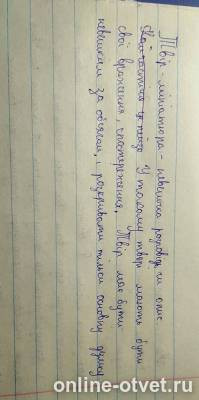 Твір-мініатюра - невелика розповідь чи опис
У такому творі мають бути
свої враження, спостереження. Твір має бути
невеликим за обсягом, і розкривати тільки основну думку
online-otvet.ru